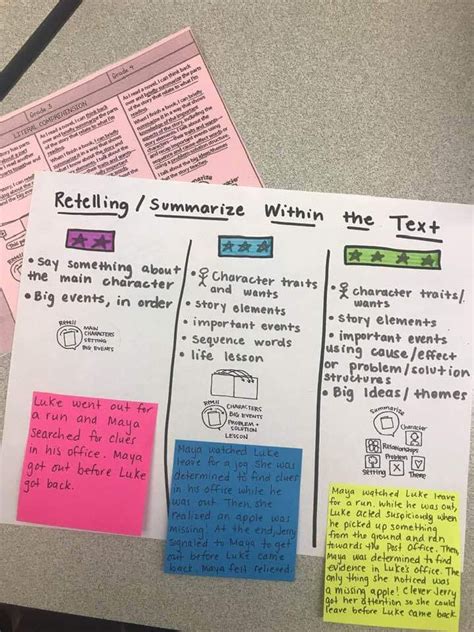 Grade 3
Grade 4
LITERAL COMPREHENSION
As I read a novel, I can think back
When I finish a book, I can briefly
Retelling / Summarize Within the Text
• Say something about
the main character
• Big events, in order
Retell
MAIN
CHARACTERS
SETTING
BIG EVENTS
Luke went out for
a run and Maya
searched for clues
in his office. Maya
got out before Luke
got back.
• Character traits
and wants
• story elements
• important events
• sequence words
• life lesson
Retell
CHARACTERS
BIG EVENTS
PROBLEM +
SOLUTION
LESSON
Maya watched Luke
leave for a jog. She was
determined to find clues
in his office while he
was out. Then, she
realized an apple was
missing. At the end, Jerry
signaled to Maya to get
out before Luke came
back. Maya felt relieved.
• Character traits/
wants
• Story elements
• important events
using cause/effect
or problem/solution
structures
• Big Ideas/themes
Summarize
Character
Relationships
Problem
Setting
Theme
Maya watched Luke leave
for a run. While he was out,
Luke acted suspiciously when
he picked up something
from the ground and ran
towards the Post Office. Then,
Maya was determined to find
evidence in Luke's office. The
only thing she noticed was
a missing apple! Clever Jerry
got her attention so she could
leave before Luke came back.